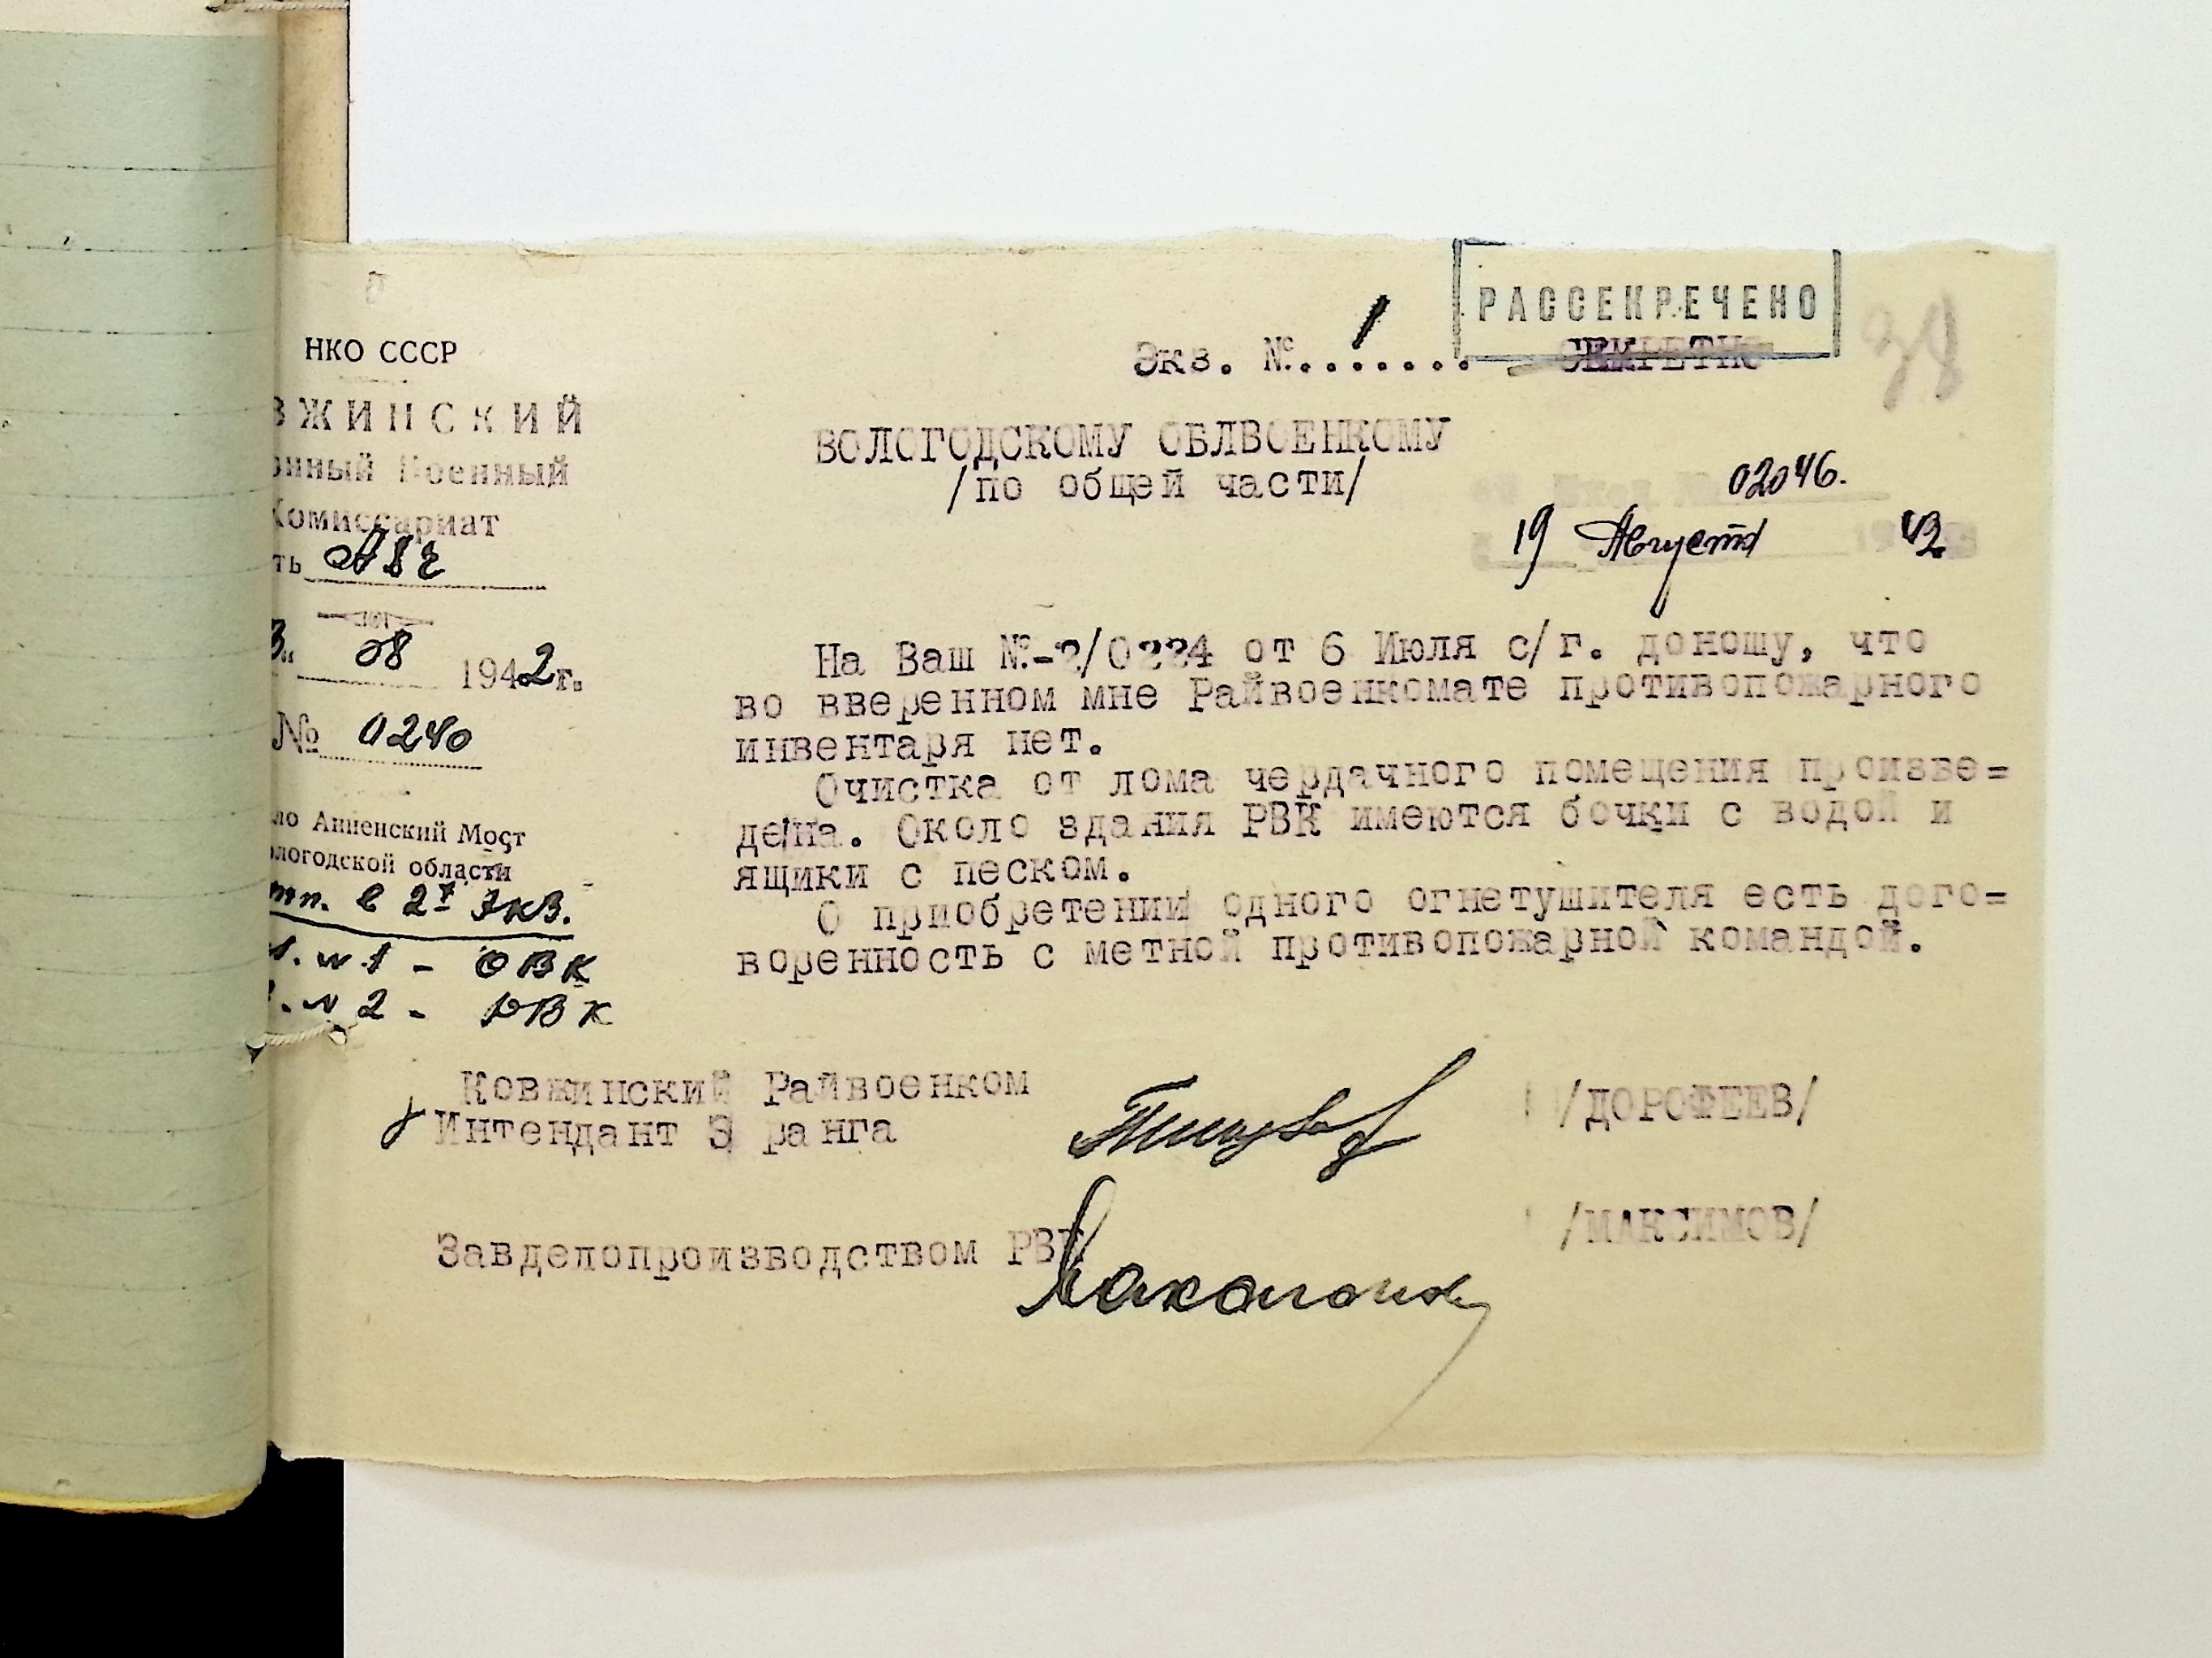 РАССЕКРЕЧЕНО
38
НКО СССР
Экз. №.1...... СЕКРЕТНО
ВЖИНСКИЙ
ВОЛОГОДСКОМУ ОБЛВОЕНКОМУ
нный Военный
/по общей части/
02046.
Комиссариат
19 Августа 42
ть
08 1942г.
На Ваш №-2/0224 от 6 Июля с/г. доношу, что
во вверенном мне Райвоенкомате противопожарного
№ 0240
инвентаря нет.
Очистка от лома чердачного помещения произве=
дена. Около здания РВК имеются бочки с водой и
ло Анненский Мост
ологодской области
ящики с песком.
тп. в 2х экз.
О приобретении одного огнетушителя есть дого=
воренность с метной противопожарной командой.
з. №1 - ОВК
. № 2 - РВК
Ковжинский Райвоенком
Интендант 3 ранга /ДОРОФЕЕВ/
Завделопроизводством РВК /МАКСИМОВ/